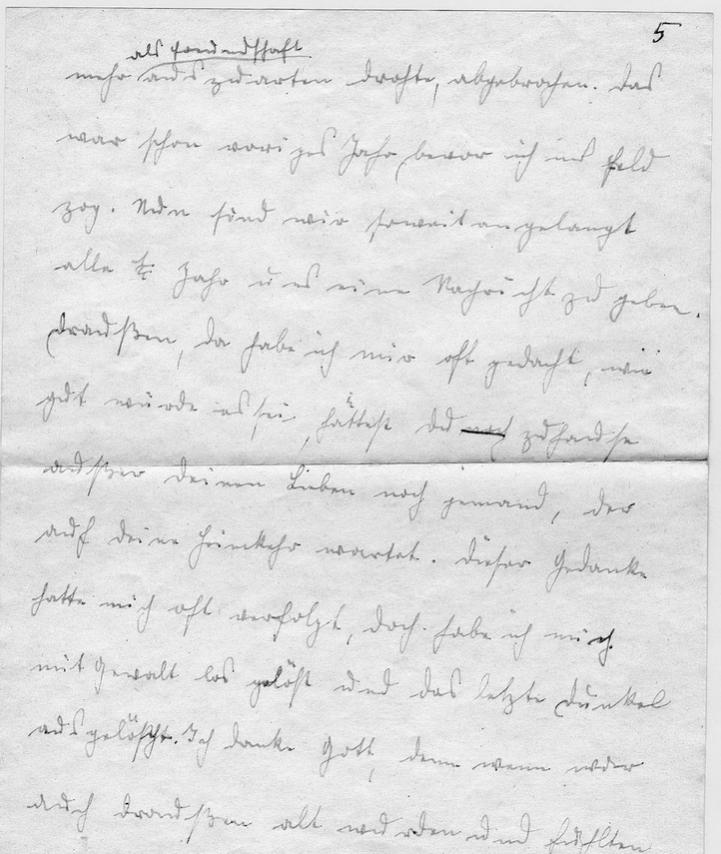 5
als Freundschaft
mehr auszuarten drohte, abgebrochen. Das
war schon voriges Jahr bevor ich ins Feld
zog. Nun sind wir soweit angelangt
alle Jahr uns eine Nachricht zu geben.
Draußen, da habe ich mir oft gedacht, wie
gut würde es sei, hättest du noch zuhause
außer deinen Lieben noch jemand, der
auf deine Heimkehr wartet. Dieser Gedanke
hatte mich oft verfolgt, doch habe ich mich
mit Gewalt los gelöst und das letzte Dunkel
ausgelöscht. Ich danke Gott, denn wenn wir
auch draußen alt wurden und fühlten